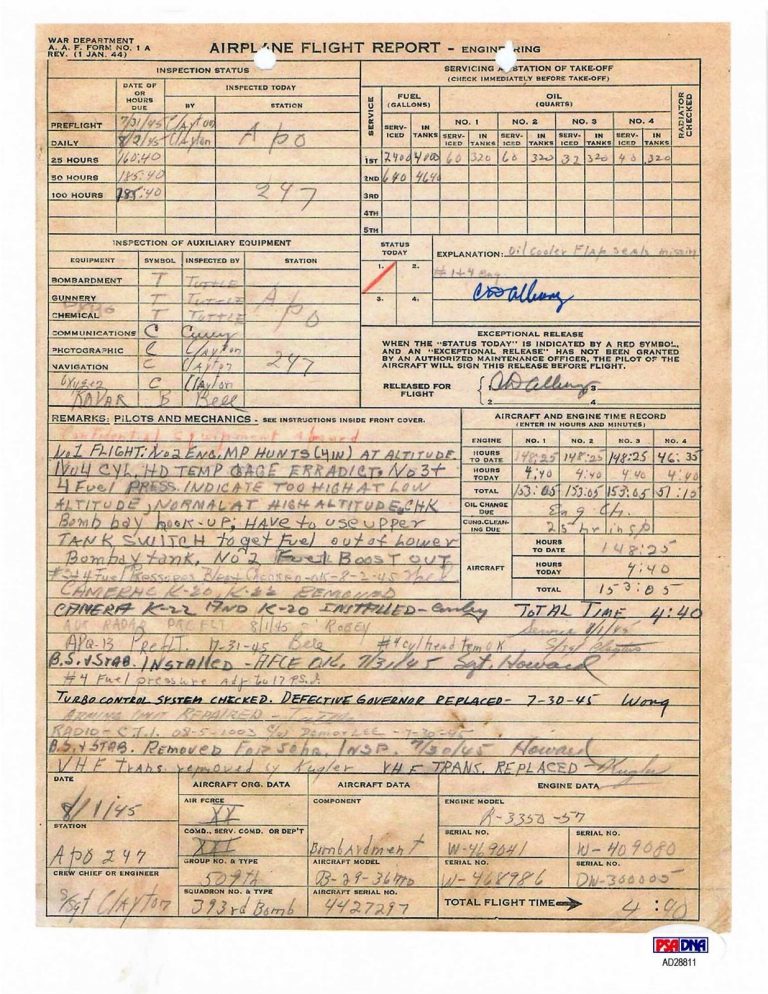 WAR DEPARTMENT
A. A. F. FORM NO. 1 A
REV. (1 JAN. 44)
AIRPLANE FLIGHT REPORT - ENGINEERING
INSPECTION STATUS
DATE OF OR HOURS DUE
INSPECTED TODAY
BY STATION
PREFLIGHT 7/31/45 Clayton
DAILY 8/2/45 Clayton Apo
25 HOURS 160:40
50 HOURS 185:40 247
100 HOURS 185:40
SERVICING STATION OF TAKE-OFF
(CHECK IMMEDIATELY BEFORE TAKE-OFF)
SERVICE
FUEL (GALLONS)
OIL (QUARTS)
RADIATOR CHECKED
NO. 1 NO. 2 NO. 3 NO. 4
SERV-ICED IN TANKS SERV-ICED IN TANKS SERV-ICED IN TANKS SERV-ICED IN TANKS SERV-ICED IN TANKS
1ST 2400 4000 60 320 60 320 32 320 40 320
2ND 640 4640
3RD
4TH
5TH
INSPECTION OF AUXILIARY EQUIPMENT
EQUIPMENT SYMBOL INSPECTED BY STATION
BOMBARDMENT T TUTTLE
GUNNERY T TUTTLE Apo
CHEMICAL T TUTTLE
COMMUNICATIONS C
PHOTOGRAPHIC C Clayton 247
NAVIGATION C Clayton
Oxygen C Clayton
RADAR B Bell
STATUS TODAY
1. 2.
3. 4.
EXPLANATION: Oil cooler Flap seals missin
#1+4 Eng
EXCEPTIONAL RELEASE
WHEN THE "STATUS TODAY" IS INDICATED BY A RED SYMBOL, AND AN "EXCEPTIONAL RELEASE" HAS NOT BEEN GRANTED BY AN AUTHORIZED MAINTENANCE OFFICER, THE PILOT OF THE AIRCRAFT WILL SIGN THIS RELEASE BEFORE FLIGHT.
RELEASED FOR FLIGHT
3
2 4
REMARKS: PILOTS AND MECHANICS - SEE INSTRUCTIONS INSIDE FRONT COVER.
No 1 FLIGHT: No 2 ENG. MP HUNTS (4IN) AT ALTITUDE.
No 4 CYL. HD TEMP GAGE ERRADIC. No 3 +
4 Fuel PRESS. INDICATE TOO HIGH AT LOW
ALTITUDE, NORMAL AT HIGH ALTITUDE, CHK
Bomb bay hook-up; HAVE to use upper
TANK SWITCH to get Fuel out of Lower
Bombay tank, No 2 Fuel BOOST OUT
CAMERAS K-20, K-22 REMOVED
CAMERA K-22 AND K-20 INSTALLED -
8/1/45
APQ-13 Preflt. 7-31-45 Bell #4 cyl head temp OK
B.S. & STAB. INSTAlled - AFCE O.K. 7/31/45 Sgt. Howard
#4 Fuel pressure Adj to 17 P.S.I.
TURBO CONTROL SYSTEM CHECKED. DEFECTIVE GOVERNOR REPLACED - 7-30-45 Wong
REPAIRED -
RADIO - 7-30-45
B.S. & STAB. Removed For INSP. 7/30/45 Howard
VHF Trans. removed by Kugler VHF TRANS. REPLACED - Kugler
AIRCRAFT AND ENGINE TIME RECORD
(ENTER IN HOURS AND MINUTES)
ENGINE NO. 1 NO. 2 NO. 3 NO. 4
HOURS TO DATE 148:25 148:25 148:25 46:35
HOURS TODAY 4:40 4:40 4:40 4:40
TOTAL 153:05 153:05 153:05 51:15
OIL CHANGE DUE Eng Ch.
CUNO.CLEANING DUE 25 hr insp
AIRCRAFT
HOURS TO DATE 148:25
HOURS TODAY 4:40
TOTAL 153:05
TOTAL TIME 4:40
8/1/45
DATE
8/1/45
STATION
APO 247
CREW CHIEF OR ENGINEER
S/Sgt Clayton
AIRCRAFT ORG. DATA
AIR FORCE
XX
COMD., SERV. COMD. OR DEP'T
XXI
GROUP NO. & TYPE
509TH
SQUADRON NO. & TYPE
393rd Bomb
AIRCRAFT DATA
COMPONENT
Bombardment
AIRCRAFT MODEL
B-29-36MO
AIRCRAFT SERIAL NO.
4427297
ENGINE DATA
ENGINE MODEL
R-3350-57
SERIAL NO. SERIAL NO.
W-469041 W-409080
SERIAL NO. SERIAL NO.
W-468986 DW-300005
TOTAL FLIGHT TIME 4:40
PSA DNA
AD28811